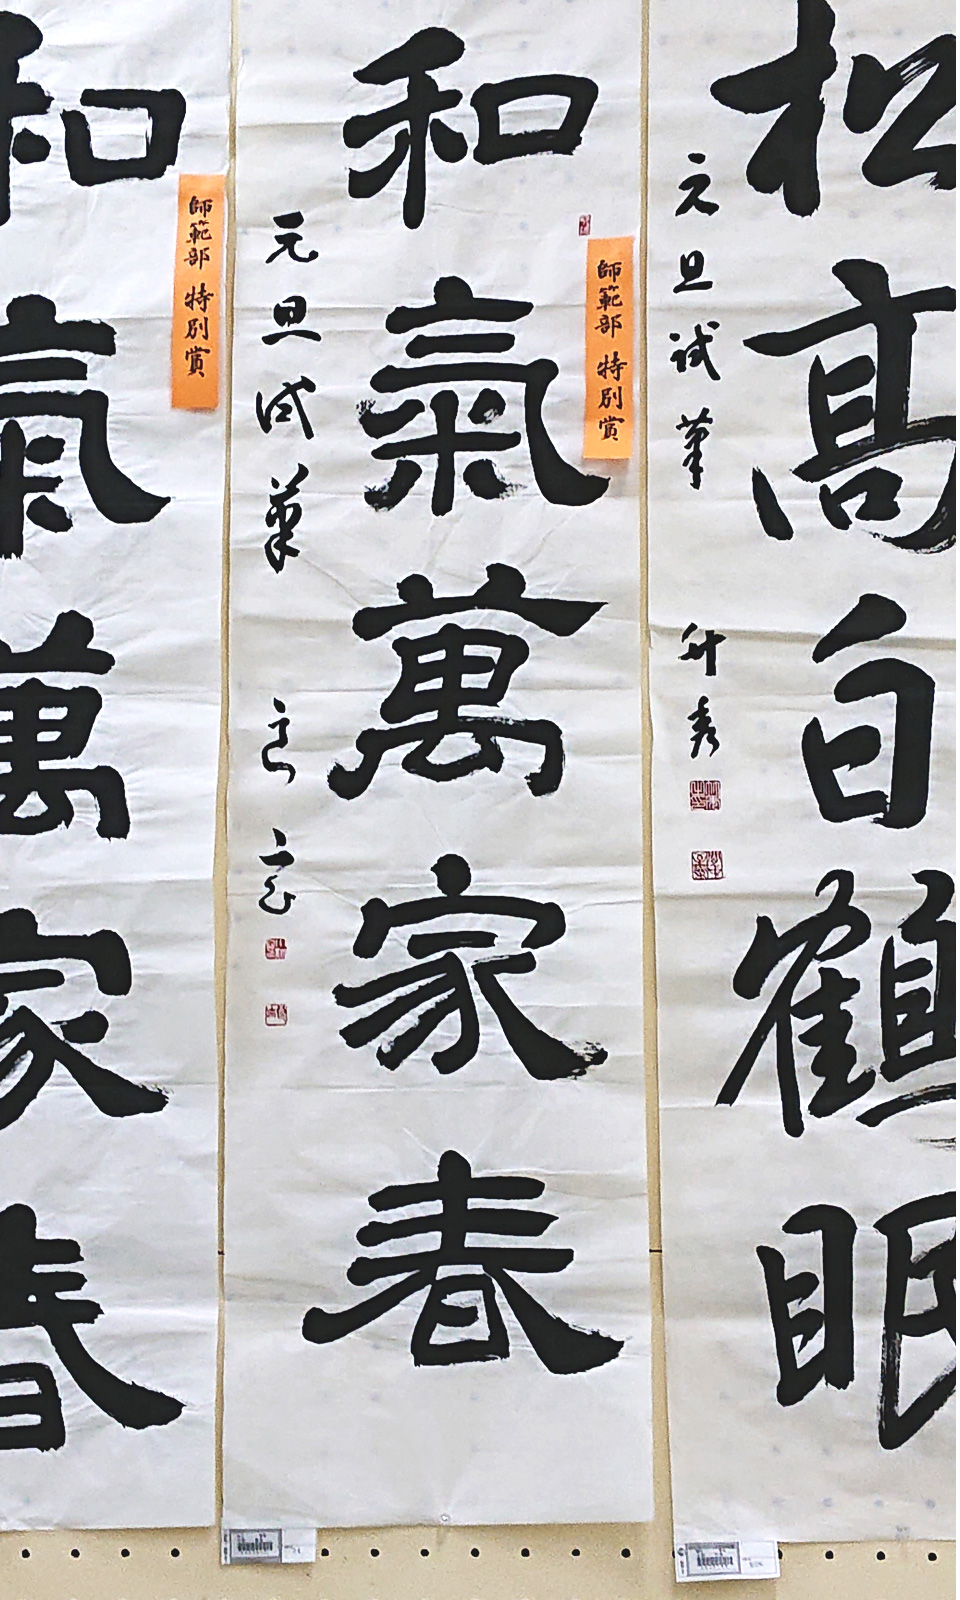 松高白鶴眠
元旦試筆
升秀
和氣萬家春
師範部 特別賞
元旦試筆
和氣萬家春
師範部 特別賞